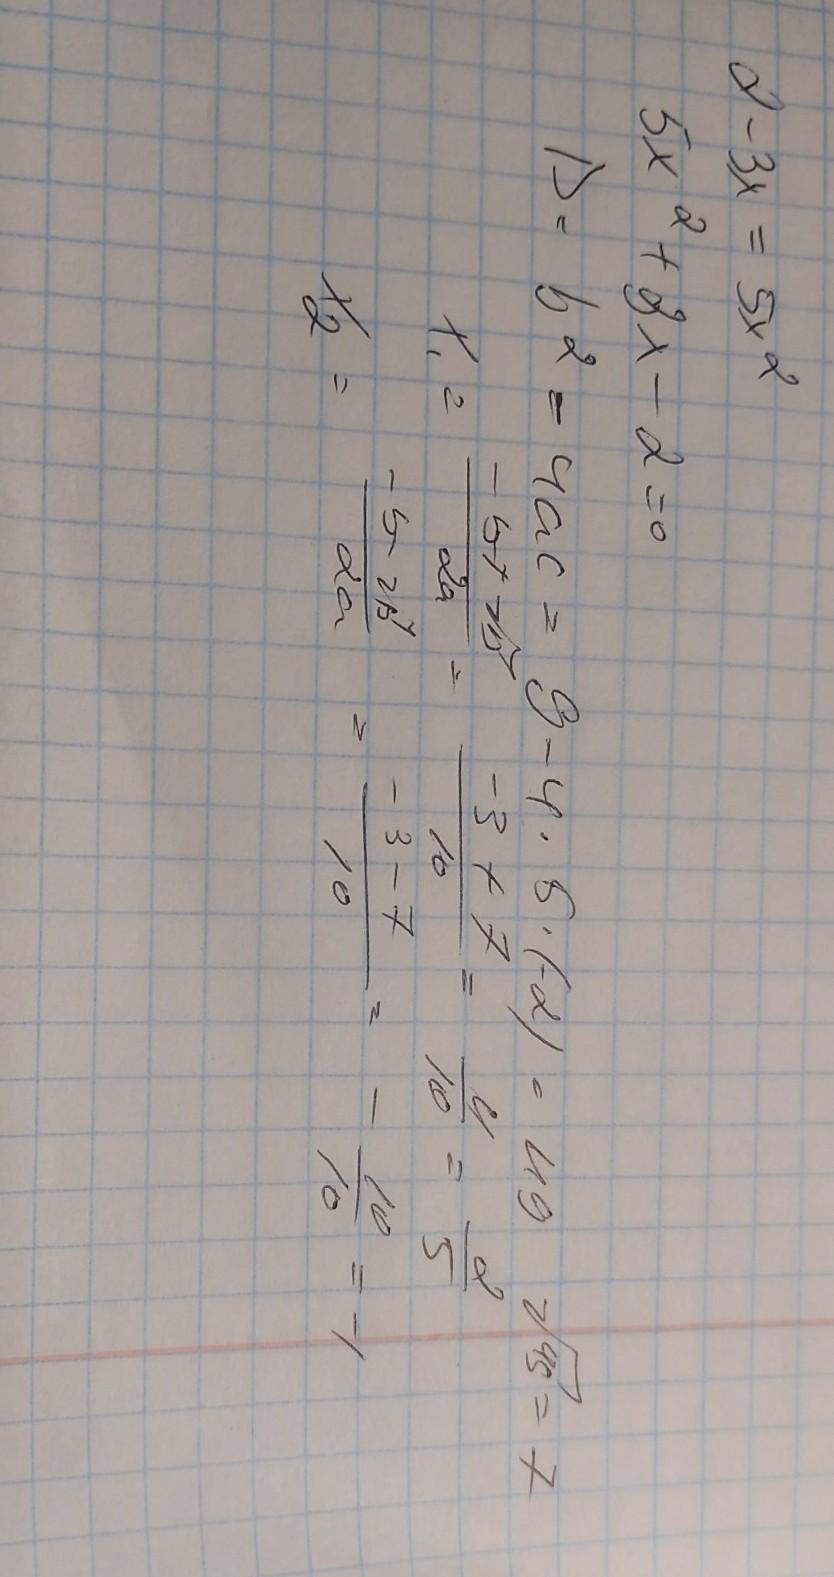 2 - 3x = 5x²
5x² + 3x - 2 = 0
D = b² - 4ac = 9 - 4 · 5 · (-2) = 49 √49 = 7
x₁ = (-b + √D)/2a = (-3 + 7)/10 = 4/10 = 2/5
x₂ = (-b - √D)/2a = (-3 - 7)/10 = -10/10 = -1